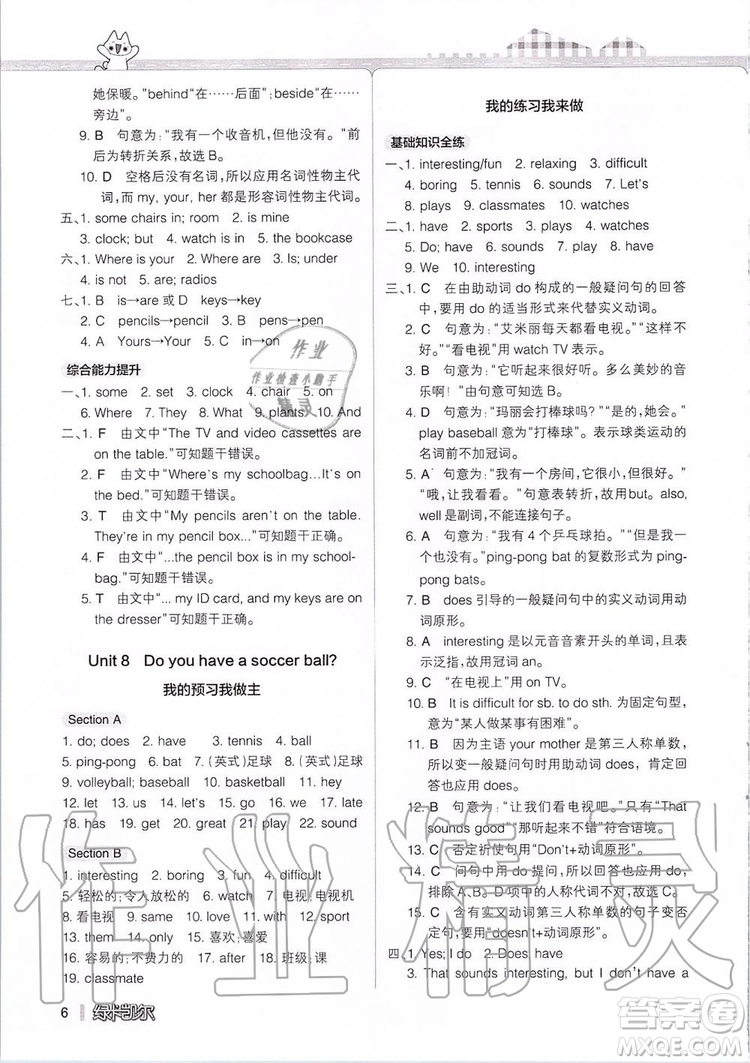 她保暖。”behind“在……后面”;beside“在……
旁边”。
9. B 句意为:“我有一个收音机,但他没有。”前
后为转折关系,故选B。
10. D 空格后没有名词,所以应用名词性物主代
词,而 my, your, her 都是形容词性物主代词。
五、1. some chairs in; room 2. is mine
3. clock; but 4. watch is in 5. the bookcase
六、1. Where is your 2. Where are 3. Is; under
4. is not 5. are; radios
七、1. B is→are 或 D keys→key
2. C pencils→pencil 3. B pens→pen
4. A Yours→Your 5. B in→on
综合能力提升
一、1. some 2. set 3. clock 4. chair 5. on
6. Where 7. They 8. What 9. plants 10. And
二、1. F 由文中“The TV and video cassettes are
on the table.”可知题干错误。
2. F 由文中“Where's my schoolbag...It's on
the bed.”可知题干错误。
3. T 由文中“My pencils aren't on the table.
They're in my pencil box...”可知题干正确。
4. F 由文中“...the pencil box is in my school-
bag.”可知题干错误。
5. T 由文中“... my ID card, and my keys are
on the dresser”可知题干正确。
Unit 8 Do you have a soccer ball?
我的预习我做主
Section A
1. do; does 2. have 3. tennis 4. ball
5. ping-pong 6. bat 7. (英式)足球 8. (英式)足球
9. volleyball; baseball 10. basketball 11. hey
12. let 13. us 14. let 15. go 16. we 17. late
18. has 19. get 20. great 21. play 22. sound
Section B
1. interesting 2. boring 3. fun 4. difficult
5. 轻松的;令人放松的 6. watch 7. 电视;电视机
8. 看电视 9. same 10. love 11. with 12. sport
13. them 14. only 15. 喜欢;喜爱
16. 容易的;不费力的 17. after 18. 班级;课
19. classmate
6 绿卡凯尔
我的练习我来做
基础知识全练
一、1. interesting/fun 2. relaxing 3. difficult
4. boring 5. tennis 6. sounds 7. Let's
8. plays 9. classmates 10. watches
二、1. have 2. sports 3. playing 4. watches
5. Do; have 6. sounds 7. play 8. have
9. We 10. watches
三、1. C 在由助动词 do 构成的一般疑问句的回答
中,要用 do 的适当形式来代替实义动词。
2. C 句意为:“艾米丽每天都看电视。”“看电视”用 watch TV 表示。
3. B 句意为:“它听起来很好。多么美妙的音
乐啊!”由句意可知选B。
4. D 句意为:“玛丽会打棒球吗?”“是的,她会。”
play baseball 意为“打棒球”。表示球类运动的
名词前不加冠词。
5. A 句意为:“我有一个房间,它很小,但很好。”
“哦,让我看看。”句意表转折,故用but。also,
well是副词,不能连接句子。
6. C 句意为:“我有4个乒乓球拍。”“但是我一
个也没有。”ping-pong bat 的复数形式为 ping-
pong bats。
7. B does 引导的一般疑问句中的实义动词用动
词原形。
8. A interesting 是以元音音素开头的单词,且
表示泛指,故用冠词 an。
9. C “在电视上”用 on TV。
10. B It is difficult for sb. to do sth. 为固定句型,
意为“某人做某事有困难”。
11. B 因为主语 your mother 是第三人称单数,
所以变一般疑问句时用助动词 does,肯定回
答也应用 does。
12. B 句意为:“让我们看电视吧。”只有“That
sounds good”“那听起来不错”符合语境。
13. C 否定祈使句用“Don't+动词原形”。
14. C 问句中用 do 提问,所以答语中用 do 回
答,故排除A、B、D。D的人称代词不对,故选C。
15. C 含有实义动词第三人称单数的句子变否
定句,要用“doesn't+动词原形”。
四、1. Yes; I do 2. Does; have
3. That sounds interesting, but I don't have a